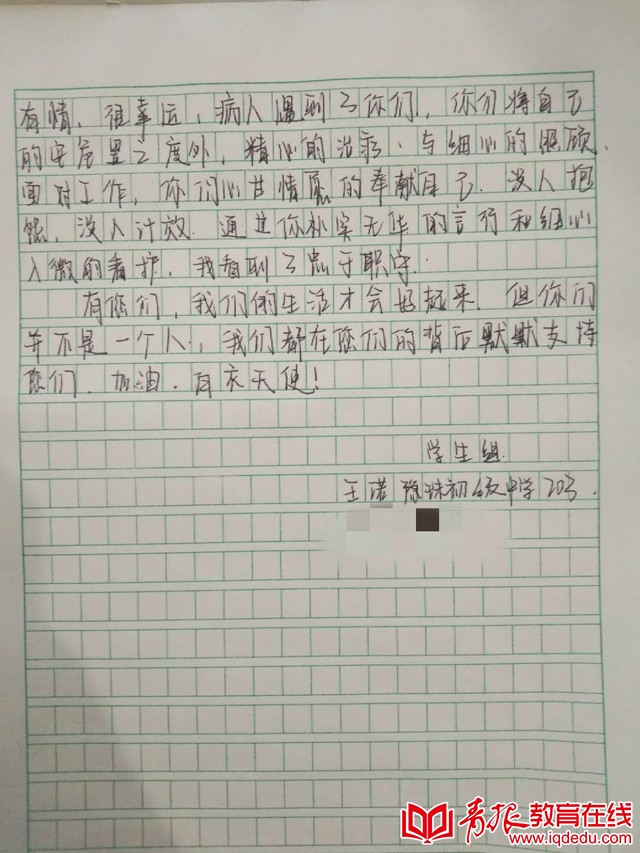 有情,很幸运,病人遇到了你们,你们将自己
的安危置之度外,精心的治疗,与细心的照顾.
面对工作,你们心甘情愿的奉献自己.没人抱
怨,没人计效.通过你朴实无华的言行和细心
入微的看护,我看到了忠于职守.
有您们,我们的生活才会好起来.但你们
并不是一个人,我们都在您们的背后默默支持
您们.加油.白衣天使!
学生组
王诺 珠初级中学 203.
青报教育在线
www.iqdedu.com